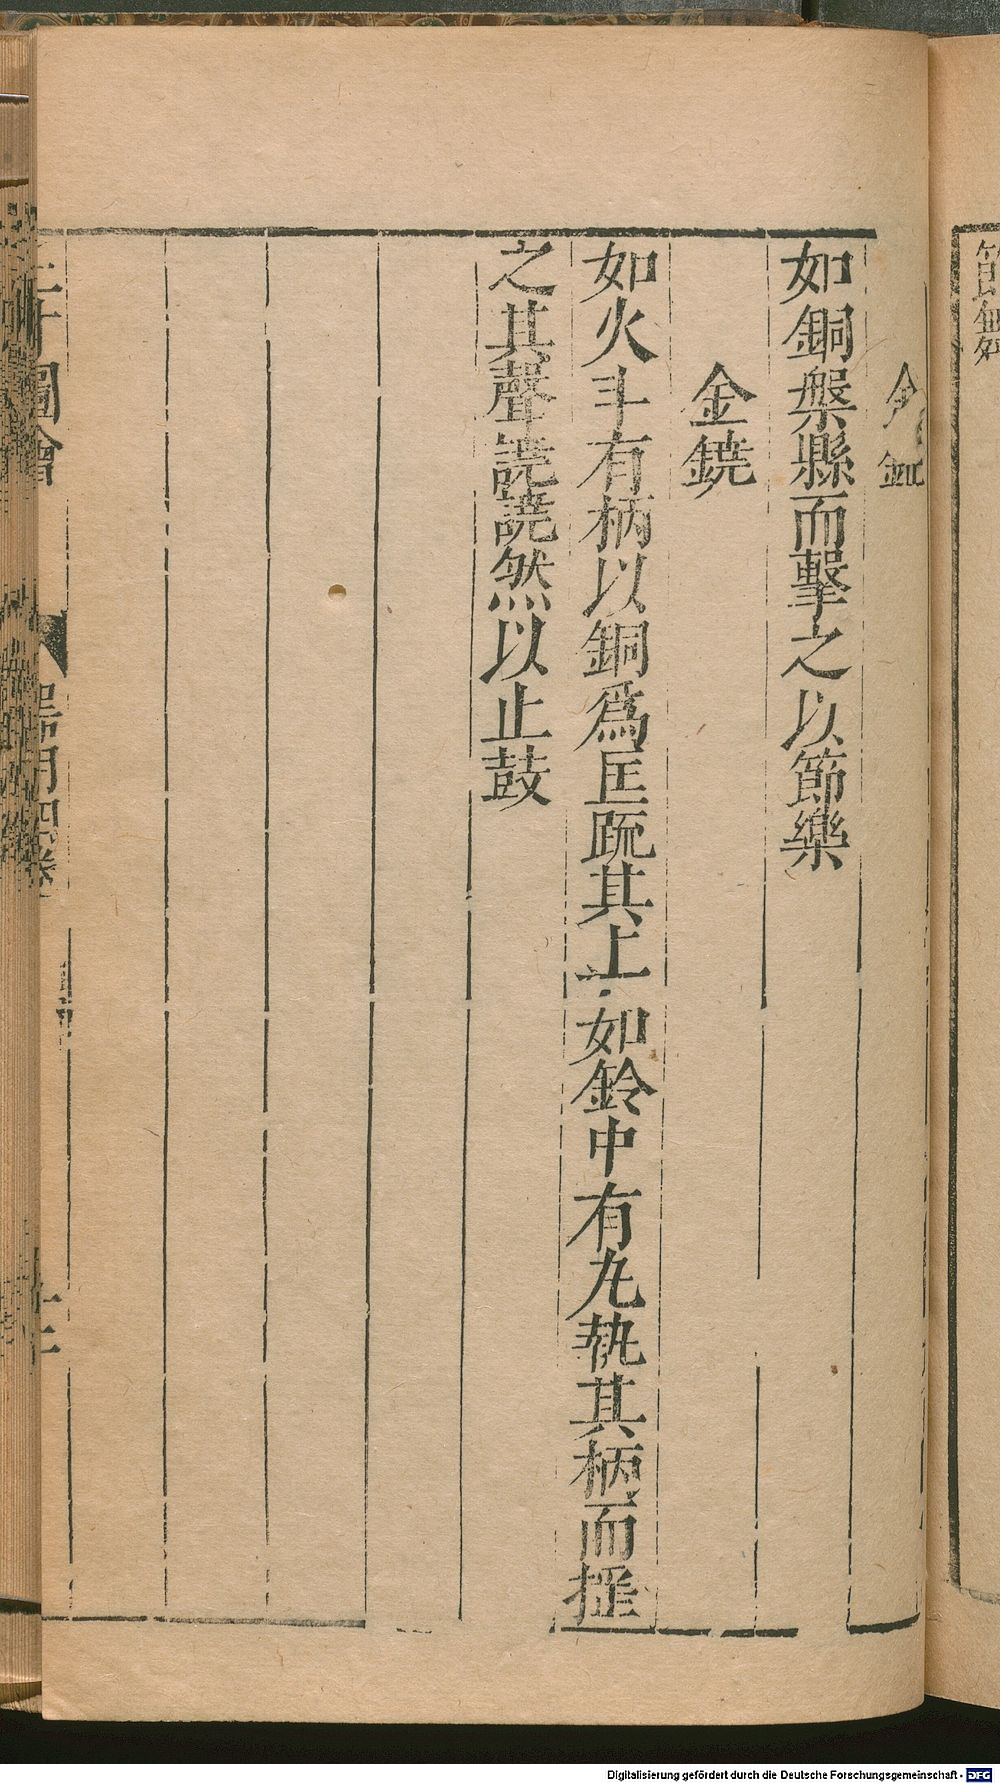 金
如銅槃縣而擊之以節樂
金鐃
如火斗有柄以銅爲匡疏其上如鈴中有丸執其柄而搖
之其聲譊譊然以止鼓
圖會
器用四卷
十二
Digitalisierung gefördert durch die Deutsche Forschungsgemeinschaft - DFG